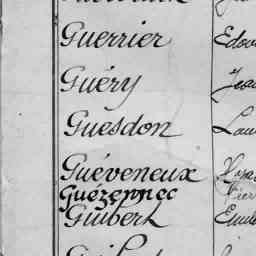 Guerrier Edou
Guéry
Guesdon Lau
Guéveneux
Guézennec
Guibert